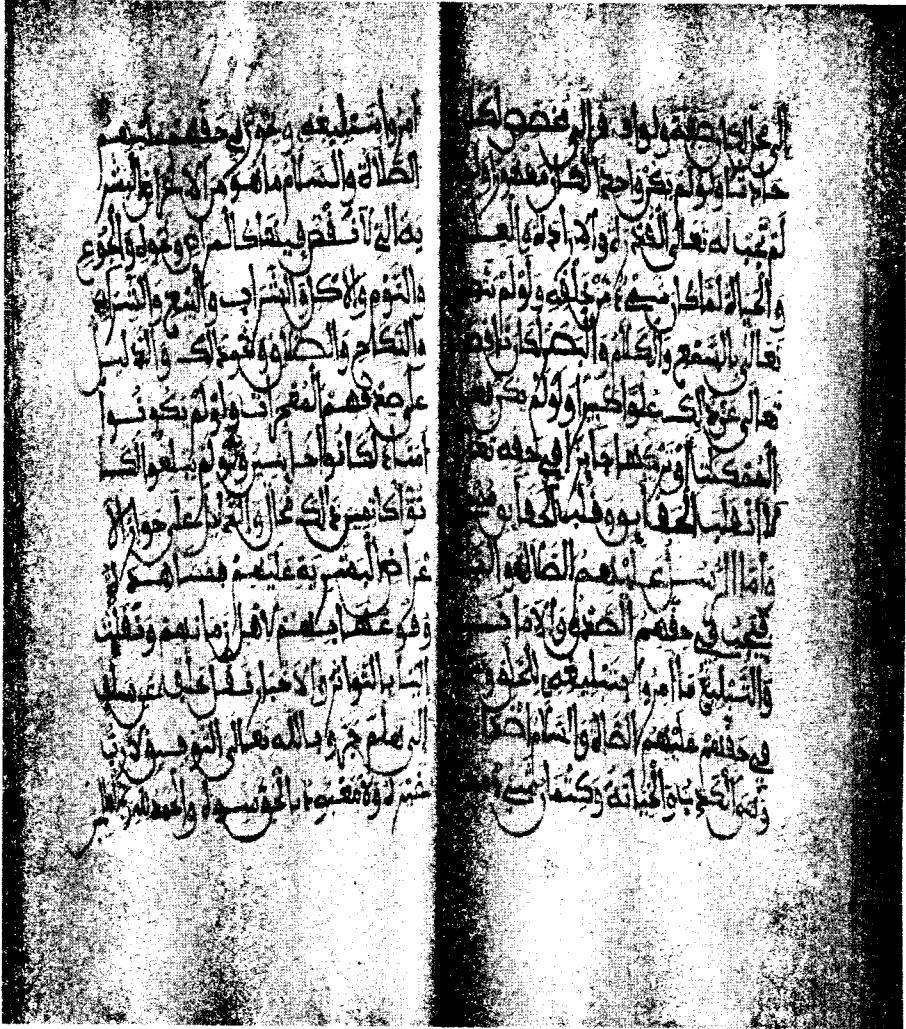 إلى محل لكان صفة ولو افتقر إلى مخصص لكا
حادثا ولو لم يكن واحدا لكان مقهورا ولو
لم تجب له تعالى القدرة والارادة والعلـ
والحياة لما كان شيء من خلقه ولو لم يتصـ
تعالى بالسمع والكلام والبصر لكان ناقصا
تعالى عن ذلك علوا كبيرا ولو لم يكن فعـ
الممكنات أو تركها جايزا في حقه تعـ
لانقلبت الحقايق وقلب الحقايق محا
وأما الرسل عليهم الصلاة والـ
فيجب في حقهم الصدق والامانـ
والتبليغ ما أمروا بتبليغه للخلق و
في حقهم عليهم الصلاة والسلام اضدا
وهو الكذب والخيانة وكتمان شيء
أمروا بتبليغه ويجوز في حقهم عليهم
الصلاة والسلام ما هو من الاعراض البشر
ية التي لا نقص فيها كالمرض ونحوه والجوع
والنوم والاكل والشراب والبيع والشراء
والنكاح والطلاق ونحو ذلك والدليل
على صدقهم المعجزات ولو لم يكونوا
أمناء لكانوا خاينين ولو لم يبلغوا لكا
نوا كاتمين وذلك محال والدليل على جواز الا
عراض البشرية عليهم مشاهدة
وقوعها بهم لأهل زمانهم ونقلت
الينا بالتواتر والاخبار خلف عن سلف
إلى هلم جرا وبالله تعالى التوفيق لا رب
غيره ولا معبود بالحق سواه والحمد لله رب العالمين